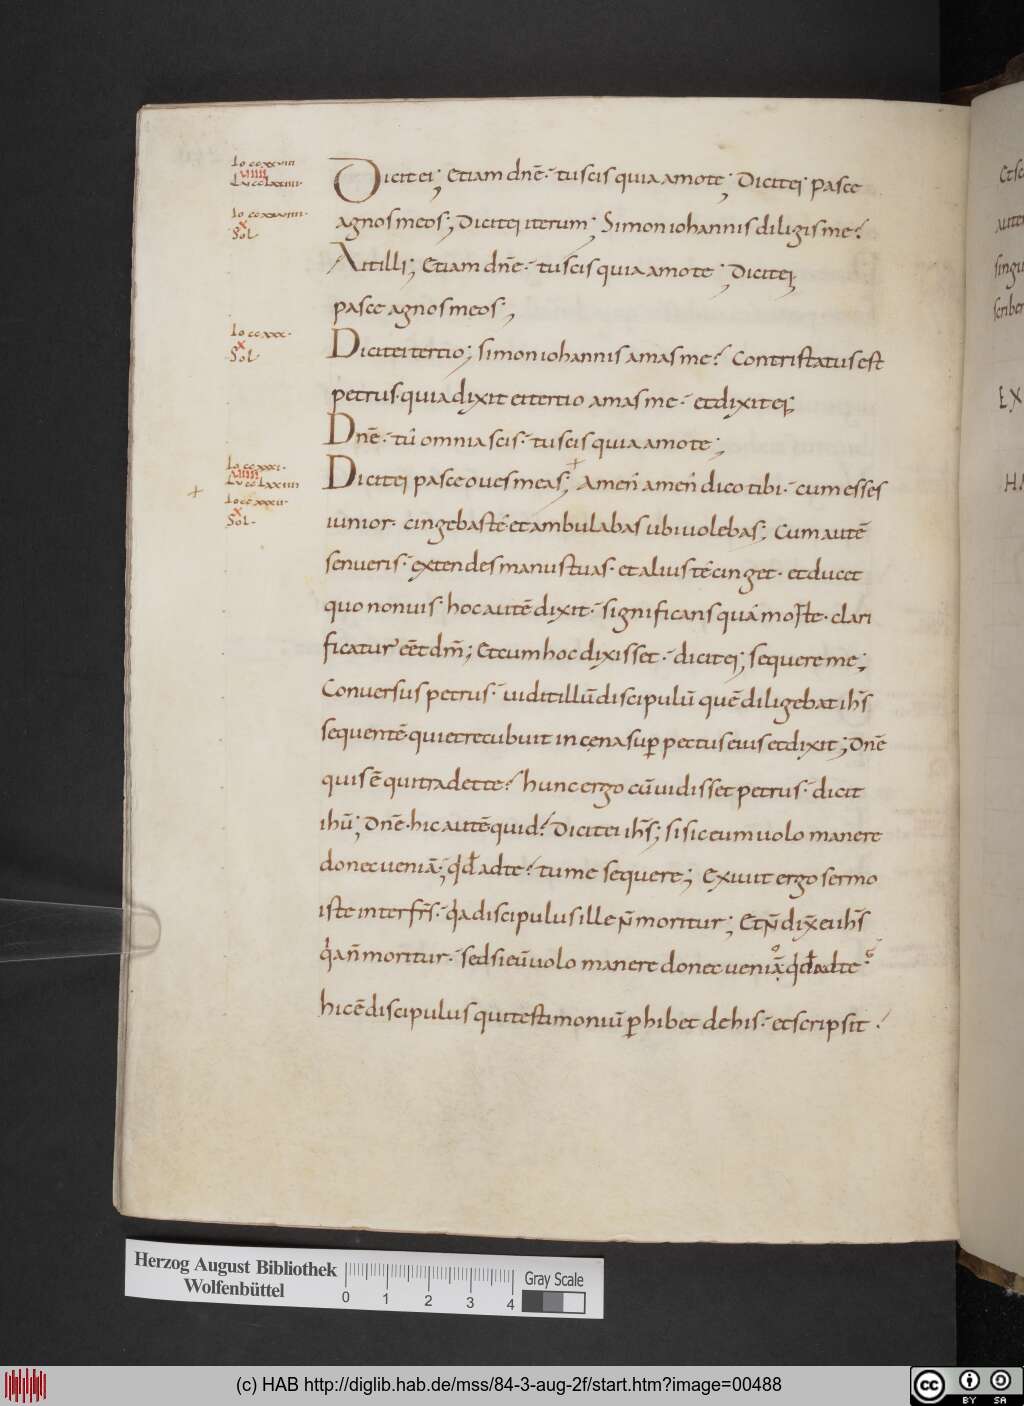 Io ccxxviii
viiii
Lu cclxxiiii·
Io ccxxviiii·
x
Sol
Dicit ei; Etiam dnē· tu scis quia amo te; Dicit ei· pasce
agnos meos; Dicit ei iterum; Simon iohannis diligis me?
Ait illi; Etiam dnē· tu scis quia amo te; Dicit ei;
pasce agnos meos;
Io ccxxx·
x
Sol
Dicit ei tertio; simon iohannis amas me? Contristatus est
petrus· quia dixit ei tertio amas me· et dixit ei;
Dnē· tu omnia scis· tu scis quia amo te;
Io ccxxxi·
viiii
Lu cclxxiiii
Io ccxxxii·
x
Sol·
Dicit ei pasce oues meas; Amen amen dico tibi· cum esses
iunior· cingebas te· et ambulabas ubi uolebas; Cum autē
senueris· extendes manus tuas· et alius te cinget· et ducet
quo non uis· hoc autē dixit· significans qua morte· clari
ficatur' eēt dm̄; Et cum hoc dixisset· dicit ei; sequere me;
Conuersus petrus· uidit illū discipulū quē diligebat ihs̄
sequentē qui et recubuit in cena sup̄ pectus eius et dixit; Dnē
quis ē qui tradet te? hunc ergo cū uidisset petrus· dicit
ihū; Dnē· hic autē quid? Dicit ei ihs̄; si sic eum uolo manere
donec ueniā; qd̄ ad te? tu me sequere; Exiuit ergo sermo
iste inter frs̄· qa discipulus ille n̄ moritur; Et n̄ dix̄ ei ihs̄
qa n̄ moritur· sed si eū uolo manere donec ueniā qd̄ ad te
hic ē discipulus qui testimoniū p̱hibet de his· et scripsit·
Et sc
autem
singu
scriber
EX
HA
Herzog August Bibliothek
Wolfenbüttel
0 1 2 3 4
Gray Scale
(c) HAB http://diglib.hab.de/mss/84-3-aug-2f/start.htm?image=00488
cc BY SA